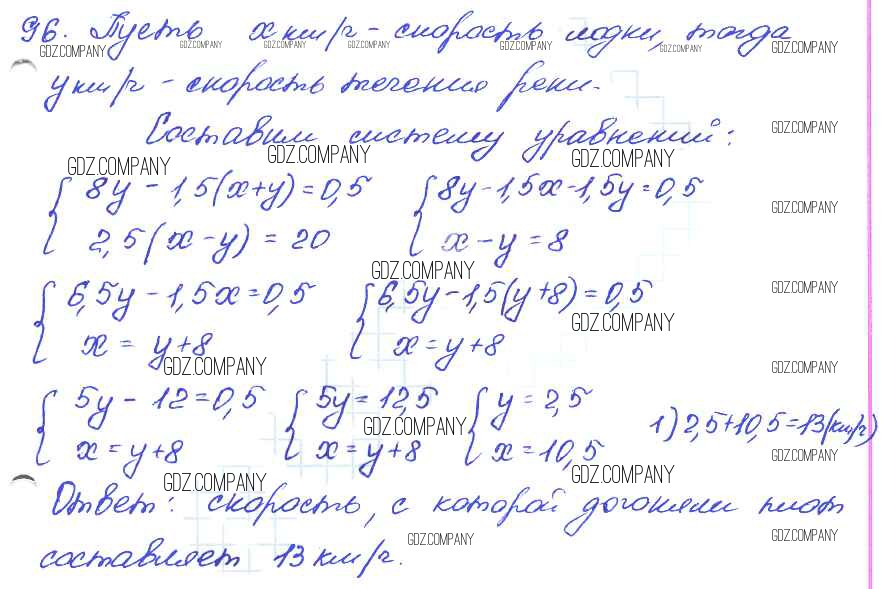 96. Пусть x км/ч - скорость лодки, тогда
GDZ.COMPANY GDZ.COMPANY GDZ.COMPANY GDZ.COMPANY GDZ.COMPANY GDZ.COMPANY GDZ.COMPANY
y км/ч - скорость течения реки.
Составим систему уравнений:
GDZ.COMPANY
GDZ.COMPANY GDZ.COMPANY GDZ.COMPANY
{ 8y - 1,5(x+y) = 0,5 { 8y - 1,5x - 1,5y = 0,5
GDZ.COMPANY
2,5(x-y) = 20 x - y = 8
GDZ.COMPANY
GDZ.COMPANY
{ 6,5y - 1,5x = 0,5 { 6,5y - 1,5(y+8) = 0,5
GDZ.COMPANY
x = y+8 x = y+8
GDZ.COMPANY GDZ.COMPANY
{ 5y - 12 = 0,5 { 5y = 12,5 { y = 2,5
GDZ.COMPANY 1) 2,5+10,5=13(км/ч)
x = y+8 x = y+8 x = 10,5
GDZ.COMPANY
GDZ.COMPANY GDZ.COMPANY
Ответ: скорость, с которой догоняли плот
GDZ.COMPANY GDZ.COMPANY
составляет 13 км/ч.